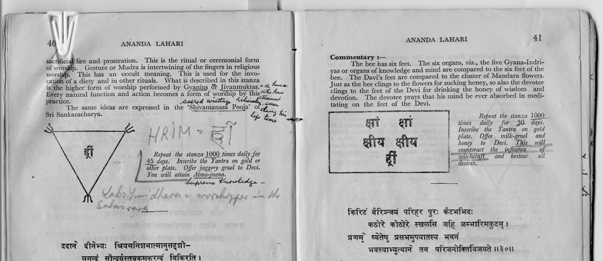 40 ANANDA LAHARI
sacrificial fire and prostration. This is the ritual or ceremonial form
of worship. Gesture or Mudra is intertwining of the fingers in religious
worship. This has an occult meaning. This is used for the invo-
cation of a diety and in other rituals. What is described in this stanza
is the higher form of worship performed by Gyanins & Jivanmuktas.
Every natural function and action becomes a form of worship by this
practice.
The same ideas are expressed in the 'Shivamanasa Pooja' of
Sri Sankaracharya.
HRIM = ह्रीं
ह्रीं
Repeat the stanza 1000 times daily for
45 days. Inscribe the Yantra on gold or
other plate. Offer jaggery gruel to Devi.
You will attain Atma-jnana.
Supreme Knowledge
worshipper in the
ददाने दीनेभ्यः श्रियमनिशमात्मानुसदृशी-
ANANDA LAHARI 41
Commentary :—
The bee has six feet. The six organs, viz., the five Gyana-Indri-
yas or organs of knowledge and mind are compared to the six feet of the
bee. The Davi's feet are compared to the cluster of Mandara flowers.
Just as the bee clings to the flowers for sucking honey, so also the devotee
clings to the feet of Devi for drinking the honey of wisdom and
devotion. The devotee prays that his mind be ever absorbed in medi-
tating on the feet of the Devi.
क्षां क्षां
क्षीय क्षीय
ह्रीं
Repeat the stanza 1000
times daily for 30 days.
Inscribe the Yantra on gold
plate. Offer milk-gruel and
honey to Devi. This will
counteract the influence of
witchcraft and bestow all
desires.
किरीटं वैरिञ्चयं परिहर पुरः कैटभभिदः
कठोरे कोटीरे स्खलसि जहि जम्भारिमकुटम् ।
प्रणम्रेष्वेतेषु प्रसभमुपयातस्य भवनं
भवस्याभ्युत्थाने तव परिजनोक्तिर्विजयते ॥३०॥